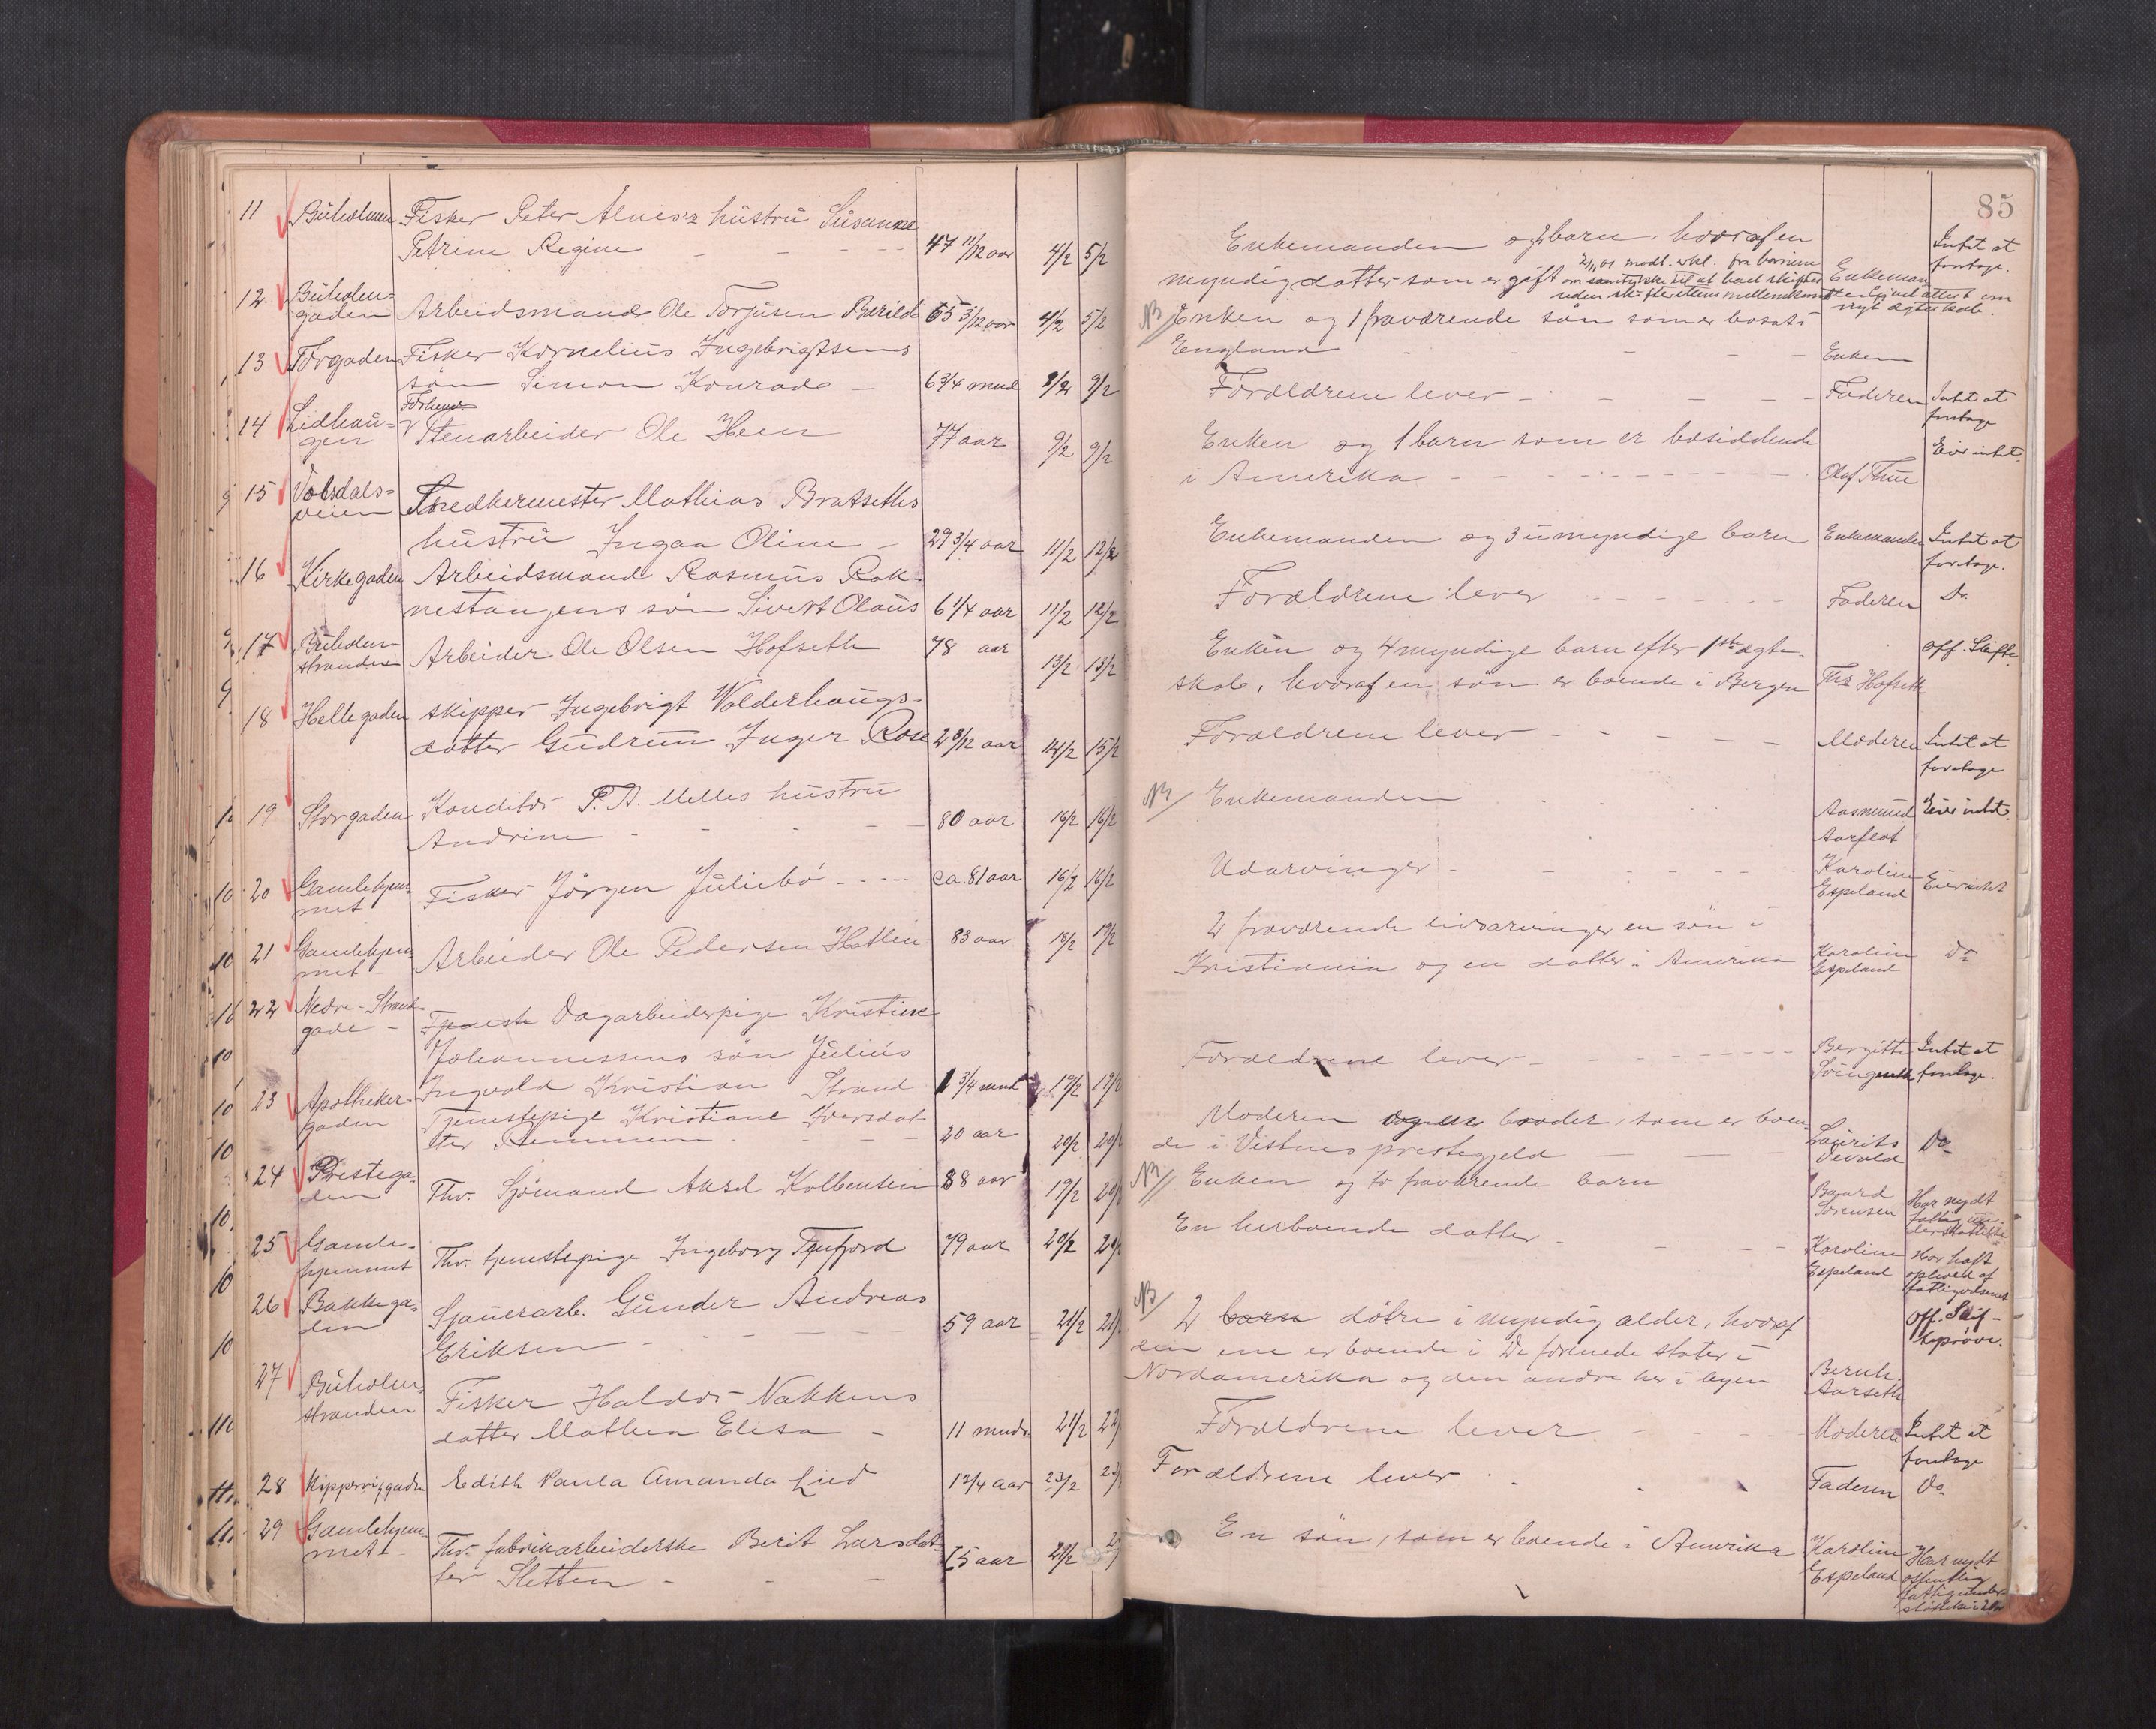 85
11 Buholmen Fisker Peter Alnes's hustru Susanne
Petrine Regine 47 11/12 aar 4/2 5/2
Enkemanden og barn, hvoraf en
myndig datter som er gift
2/11 01 modt. erkl. fra barnene
om samtykke til at bud skifter
uden skifterettens mellemkomst
Intet at
foretage.
12 Buholm-
gaden Arbeidsmand Ole Torjusen Barild 65 3/12 aar 4/2 5/2
NB Enken og 1 fraværende søn som er bosat i
England Enken
13 Torgaden Fisker Kornelius Ingebrigtsens
søn Simon Konrade 6 3/4 mnd 8/2 9/2
Forældrene lever Faderen Intet at
foretage
14 Lidhau-
gen Stenarbeider Ole Heen 77 aar 9/2 9/2
Enken og 1 barn som er bosiddende
i Amerika Olaf Thue Eier intet.
15 Volsdals-
veien Snedkermester Mathias Bratseths
hustru Ingaa Oline 29 3/4 aar 11/2 12/2
Enkemanden og 3 umyndige barn Enkemanden Intet at
foretage.
16 Kirkegaden Arbeidsmand Rasmus Rak-
nestangens søn Sivert Olaus 6 1/4 aar 11/2 12/2
Forældrene lever Faderen Do.
17 Buholm-
stranden Arbeider Ole Olsen Hofseth 78 aar 13/2 13/2
Enken og 4 myndige barn efter 1ste ægte-
skab, hvoraf en søn er boende i Bergen Ths Hofseth Off. Skifte
18 Hellegaden skipper Ingebrigt Valderhaugs-
datter Gudrun Inger Rose 2 8/12 aar 14/2 15/2
Forældrene lever Moderen Intet at
foretage
19 Storgaden Konditor P. A. Melles hustru
Andrine 80 aar 16/2 16/2
NB Enkemanden Aasmund
Aarflot Eier intet.
20 Gamlehjem-
met Fisker Jørgen Juliebø ca. 81 aar 16/2 16/2
Udarvinger Karoline
Espeland Eier intet
21 Gamlehjem-
met Arbeider Ole Pedersen Hatlen 83 aar 18/2 19/2
2 fraværende livsarvinger en søn i
Kristiania og en datter i Amerika Karoline
Espeland Do
22 Nedre-Strand-
gade Tjeneste Dagarbeiderpige Kristine
Johannessens søn Julius
Ingvald Kristian Strand 1 3/4 mnd 19/2 19/2
Forældrene lever Bergitte Intet at
foretage.
23 Apotheker-
gaden Tjenestepige Kristiane Iversdat-
ter Remmem 20 aar 20/2 20/
Moderen og en broder, som er boen-
de i Vestnes prestegjeld Laurits
Devold Do
24 Prestega-
den Fhv. Sjømand Aksel Kolbensen 88 aar 19/2 20/
NB Enken og to fraværende barn Baard
Sørensen Har nydt
25 Gamle-
hjemmet Fhv. tjenestepige Ingeborg Tenfjord 79 aar 20/2 20/
En herboende datter Karoline
Espeland Har havt
ophold af
fattigvæsenet
26 Bakkega-
den Sjauerarb. Gunder Andreas
Eriksen 59 aar 21/2 21/
NB 2 barn døtre i myndig alder, hvoraf
den ene er boende i De forenede stater i
Nordamerika og den andre her i byen Bernh.
Aarseth Off. Skif-
teprøve.
27 Buholm-
stranden Fisker Haldor Nakkens
datter Mathea Elisa 11 mnds. 21/2 22/
Forældrene lever Moderen Intet at
foretage
28 Kippervikgaden Edith Paula Amanda Lied 1 3/4 aar 23/2 23/
Forældrene lever Faderen Do.
29 Gamlehjem-
met Fhv. fabrikarbeiderske Berit Larsdat-
ter Sletten 75 aar 21/2
En søn, som er boende i Amerika Karoline
Espeland Har nydt
offentlig
fattigunder-
støttelse